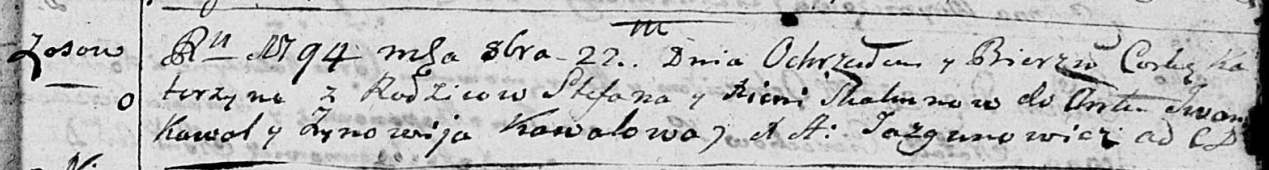 Zosow
Ru 1794 mśa 8bra 22. Dnia Ochrzciłem y Bierzm Corkę Ka
terzynę z Rodzicow Stefana y Skakunow do Iwan
Kowal y Zynowija Kowalowa X A: Jazgunowicz ad CD